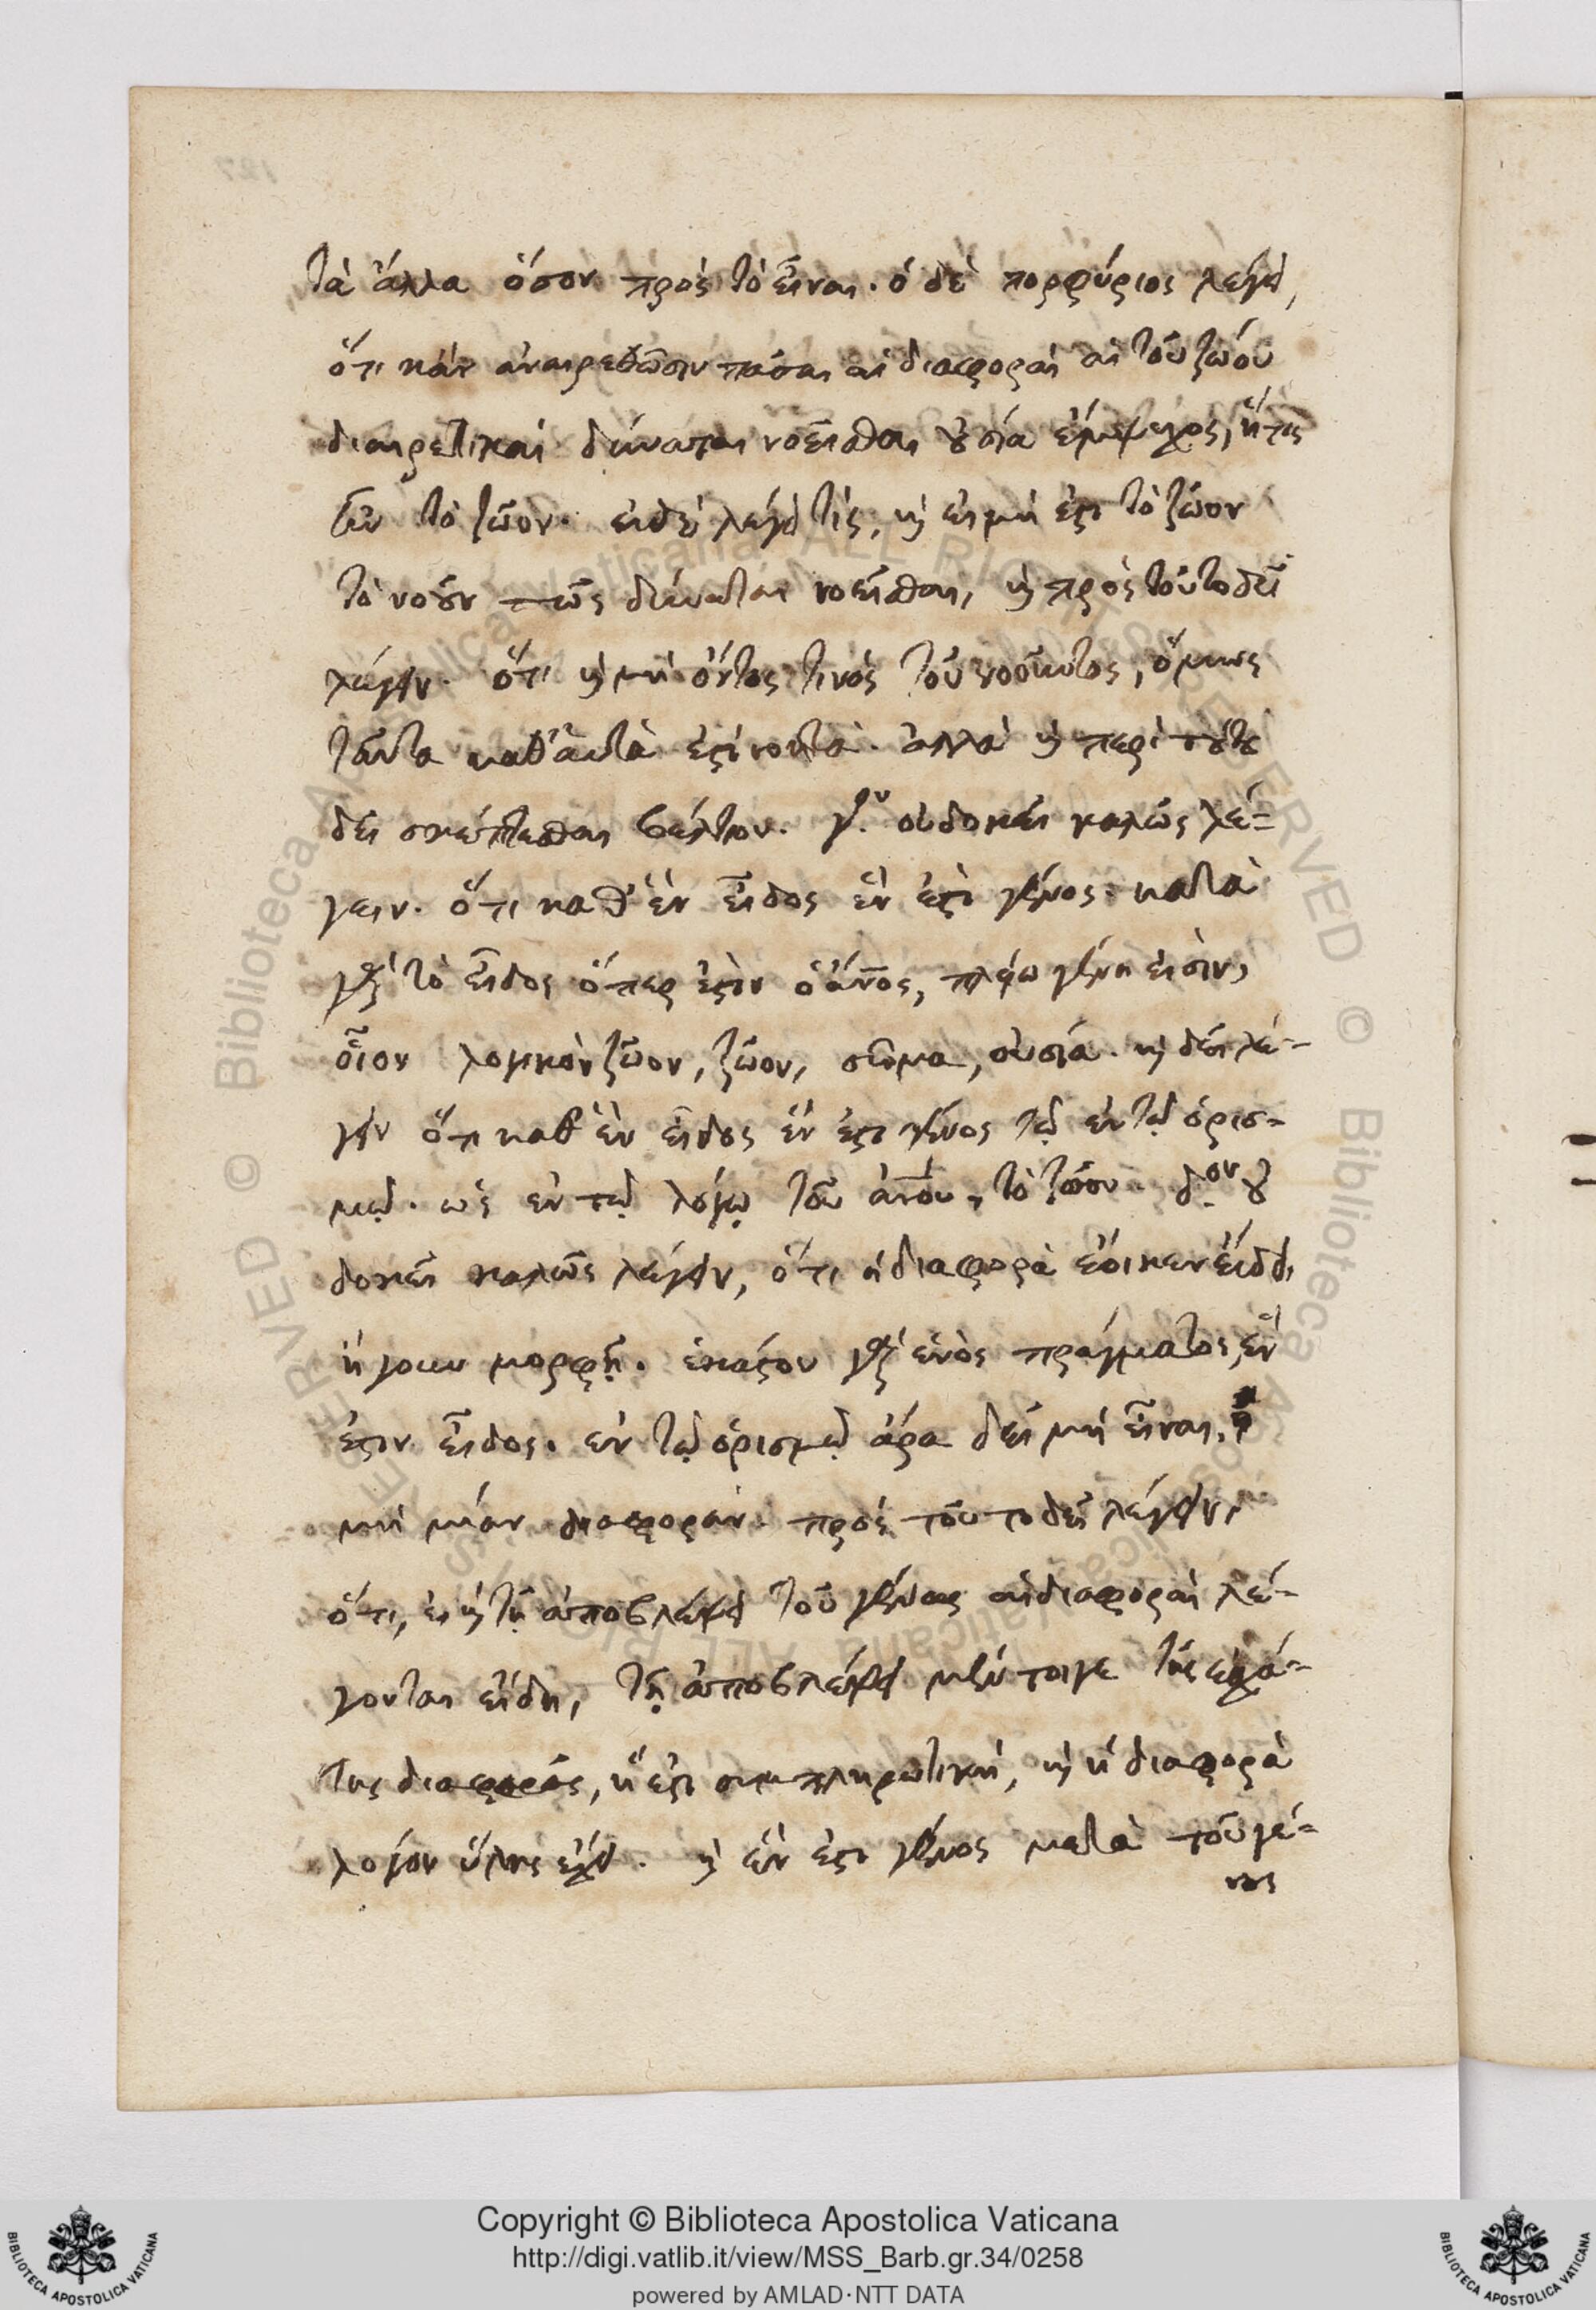 τὰ ἄλλα ὅσον πρὸς τὸ εἶναι. ὁ δὲ πορφύριος λέγει,
ὅτι κἂν ἀναιρεθῶσιν πᾶσαι αἱ διαφοραὶ αἱ τοῦ ζώου
διαιρετικαὶ δύναται νοεῖσθαι οὐσία ἔμψυχος, ἥτις
ἦν τὸ ζῶον. εἰ δὲ λέγει τίς, καὶ εἰ μή ἐστι τὸ ζῶον
τὸ νοοῦν πῶς δύναται νοεῖσθαι, καὶ πρὸς τοῦτο δεῖ
λέγειν. ὅτι καὶ μὴ ὄντος τινὸς τοῦ νοοῦντος, ὅμως
ταῦτα καθ' αὑτὰ ἐστὶ νοητὰ. ἀλλὰ καὶ περὶ τούτου
δεῖ σκέπτεσθαι βέλτιον. γ.ον οὐ δοκεῖ καλῶς λέ-
γειν. ὅτι καθ' ἓν εἶδος ἕν ἐστι γένος. κατὰ
γὰρ τὸ εἶδος ὅπερ ἐστὶν ὁ ἄνος, πλείω γένη εἰσὶν,
οἷον λογικὸν ζῶον, ζῶον, σῶμα, οὐσία. καὶ δεῖ λέ-
γειν ὅτι καθ' ἓν εἶδος ἕν ἐστι γένος τῷ ἐν τῷ ὁρισ-
μῷ. ὡς ἐν τῷ λόγῳ τοῦ ἀνου, τὸ ζῶον. δ.ον οὐ
δοκεῖ καλῶς λέγειν, ὅτι ἡ διαφορὰ ἔοικεν εἴδει
ἤγουν μορφῇ. ἑκάστου γὰρ ἑνὸς πράγματος, ἕν
ἐστιν εἶδος. ἐν τῷ ὁρισμῷ ἄρα δεῖ μὴ εἶναι,
μὴ μίαν διαφορὰν. πρὸς τοῦτο δεῖ λέγειν,
ὅτι, εἰ καὶ τῇ ἀποβλέψει τοῦ γένους αἱ διαφοραὶ λέ-
γονται εἴδη, τῇ ἀποβλέψει μέντοιγε τῆς ἐσχά-
της διαφορᾶς, ἥ ἐστι συμπληρωτικὴ, καὶ ἡ διαφορὰ
λόγον ὕλης ἔχει. καὶ ἕν ἐστι γένος μετὰ τοῦ γέ-
νους